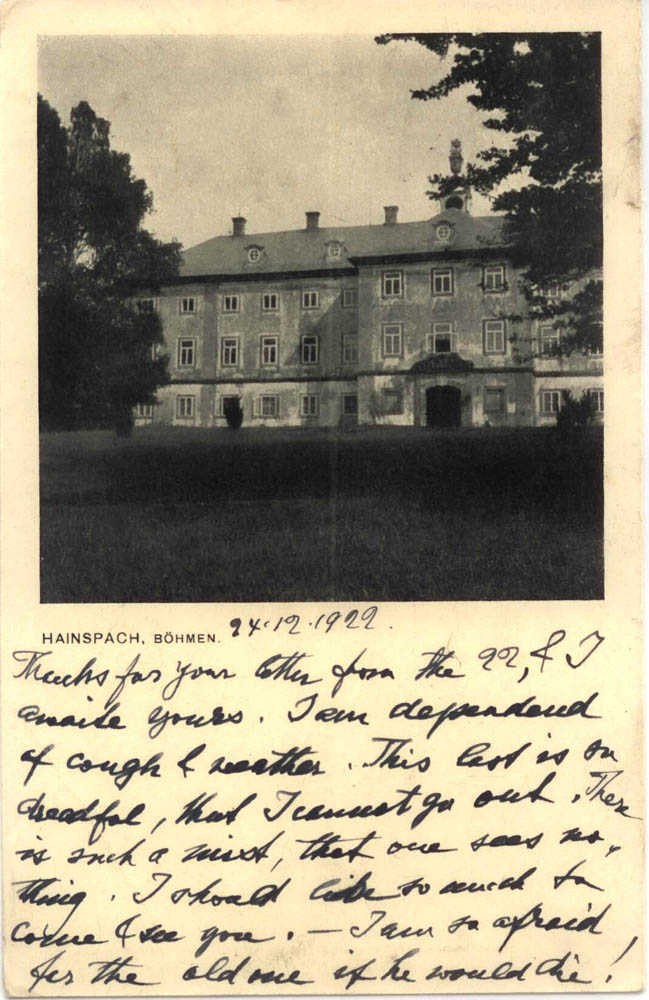 HAINSPACH, BÖHMEN. 24.12.1922.
Thanks for your letter from the 22, & I
awaite yours. I am dependend
of cough & weather. This last is so
dreadful, that I cannot go out. There
is such a mist, that one sees no-
thing. I should like so much to
come & see you. — I am so afraid
for the old one if he would die!